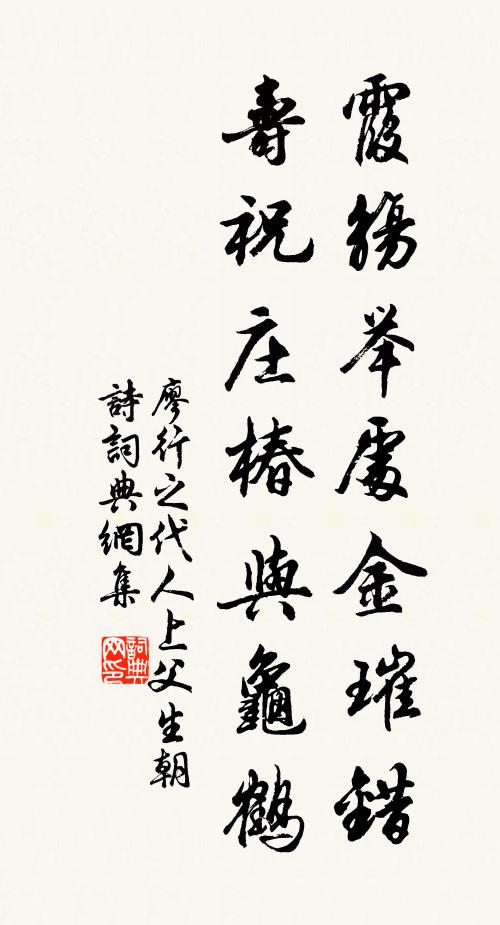 霞觴举處金璀錯
壽祝庄椿與龜鶴
廖行之代人上父生朝
詩詞典網集
詞典網印